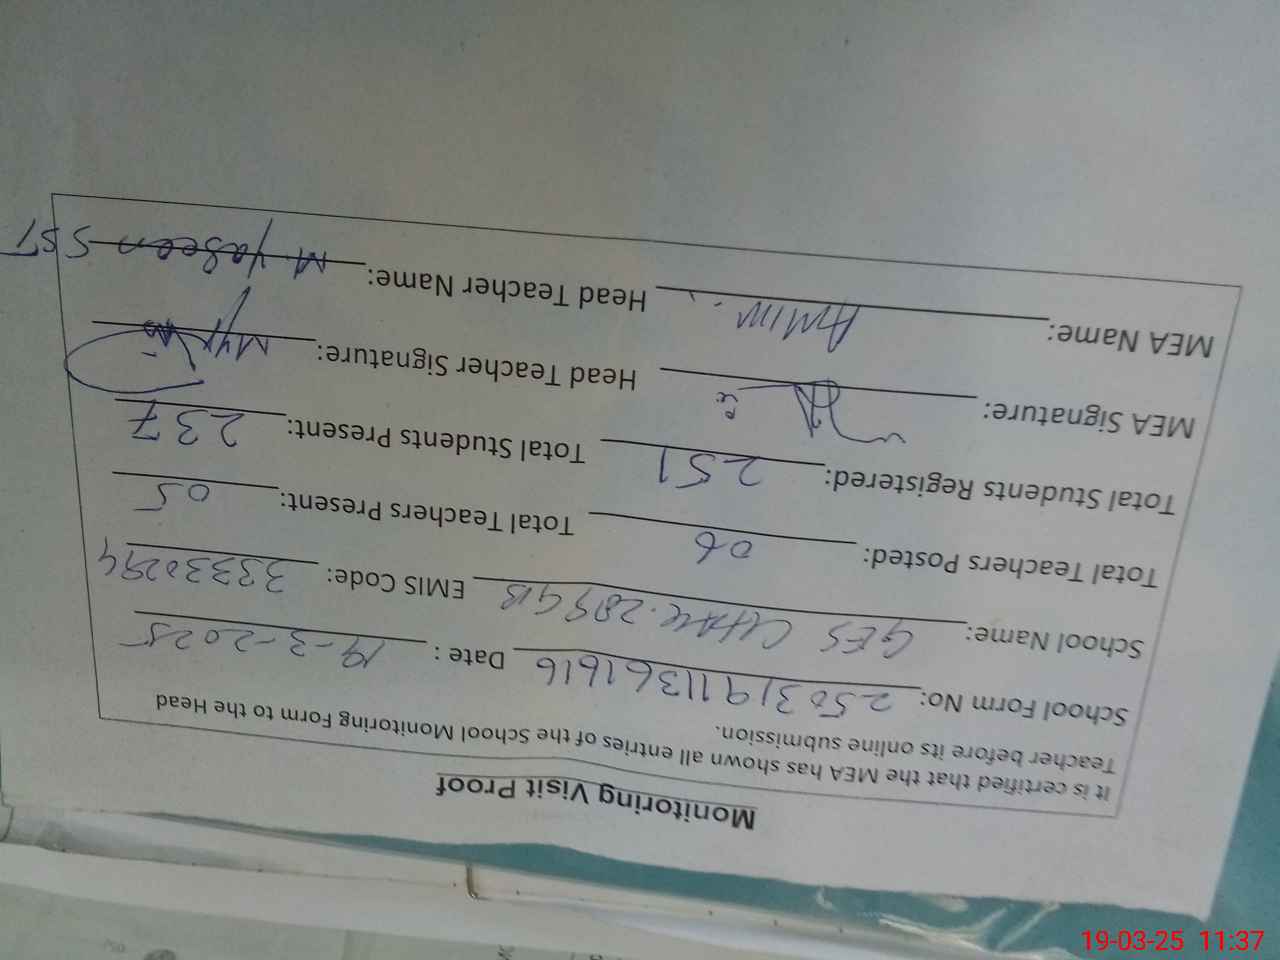 Monitoring Visit Proof
It is certified that the MEA has shown all entries of the School Monitoring Form to the Head
Teacher before its online submission.
School Form No: 2503191136 1616 Date : 19-3-2025
School Name: GES CHAK. 289 GB EMIS Code: 33330294
Total Teachers Posted: 06 Total Teachers Present: 05
Total Students Registered: 251 Total Students Present: 237
MEA Signature: Head Teacher Signature:
MEA Name: AMIN. Head Teacher Name: M. Yaseen SST
19-03-25 11:37